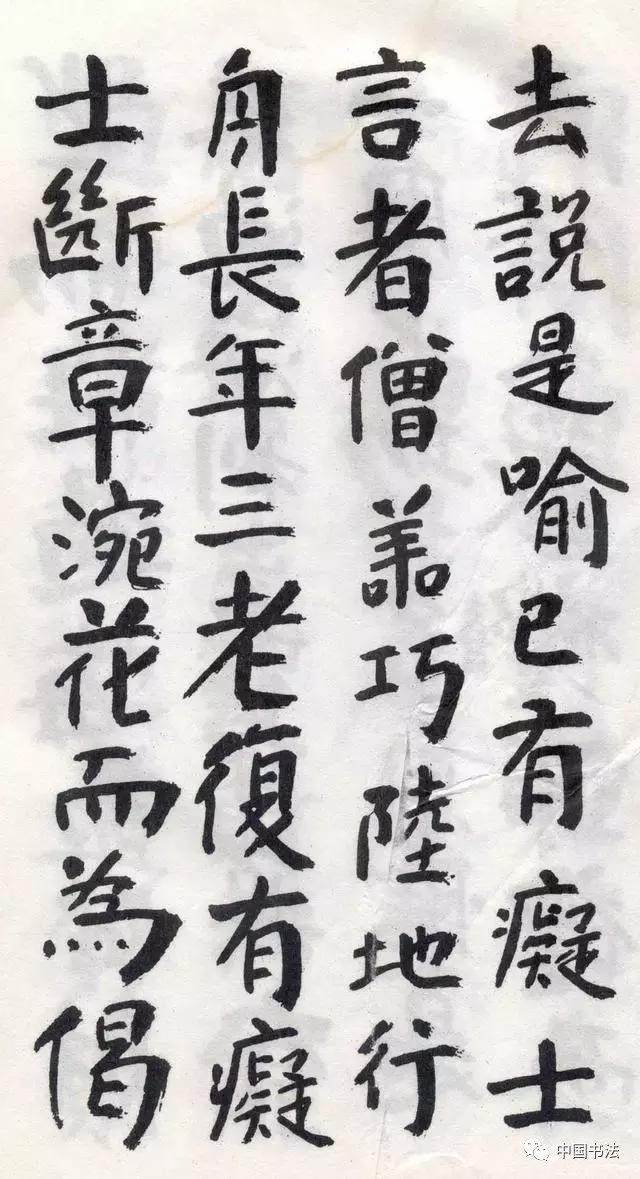 去說是喻已有癡士
言者僧善巧陸地行
舟長年三老復有癡
士斷章浣花而為偈
中国书法